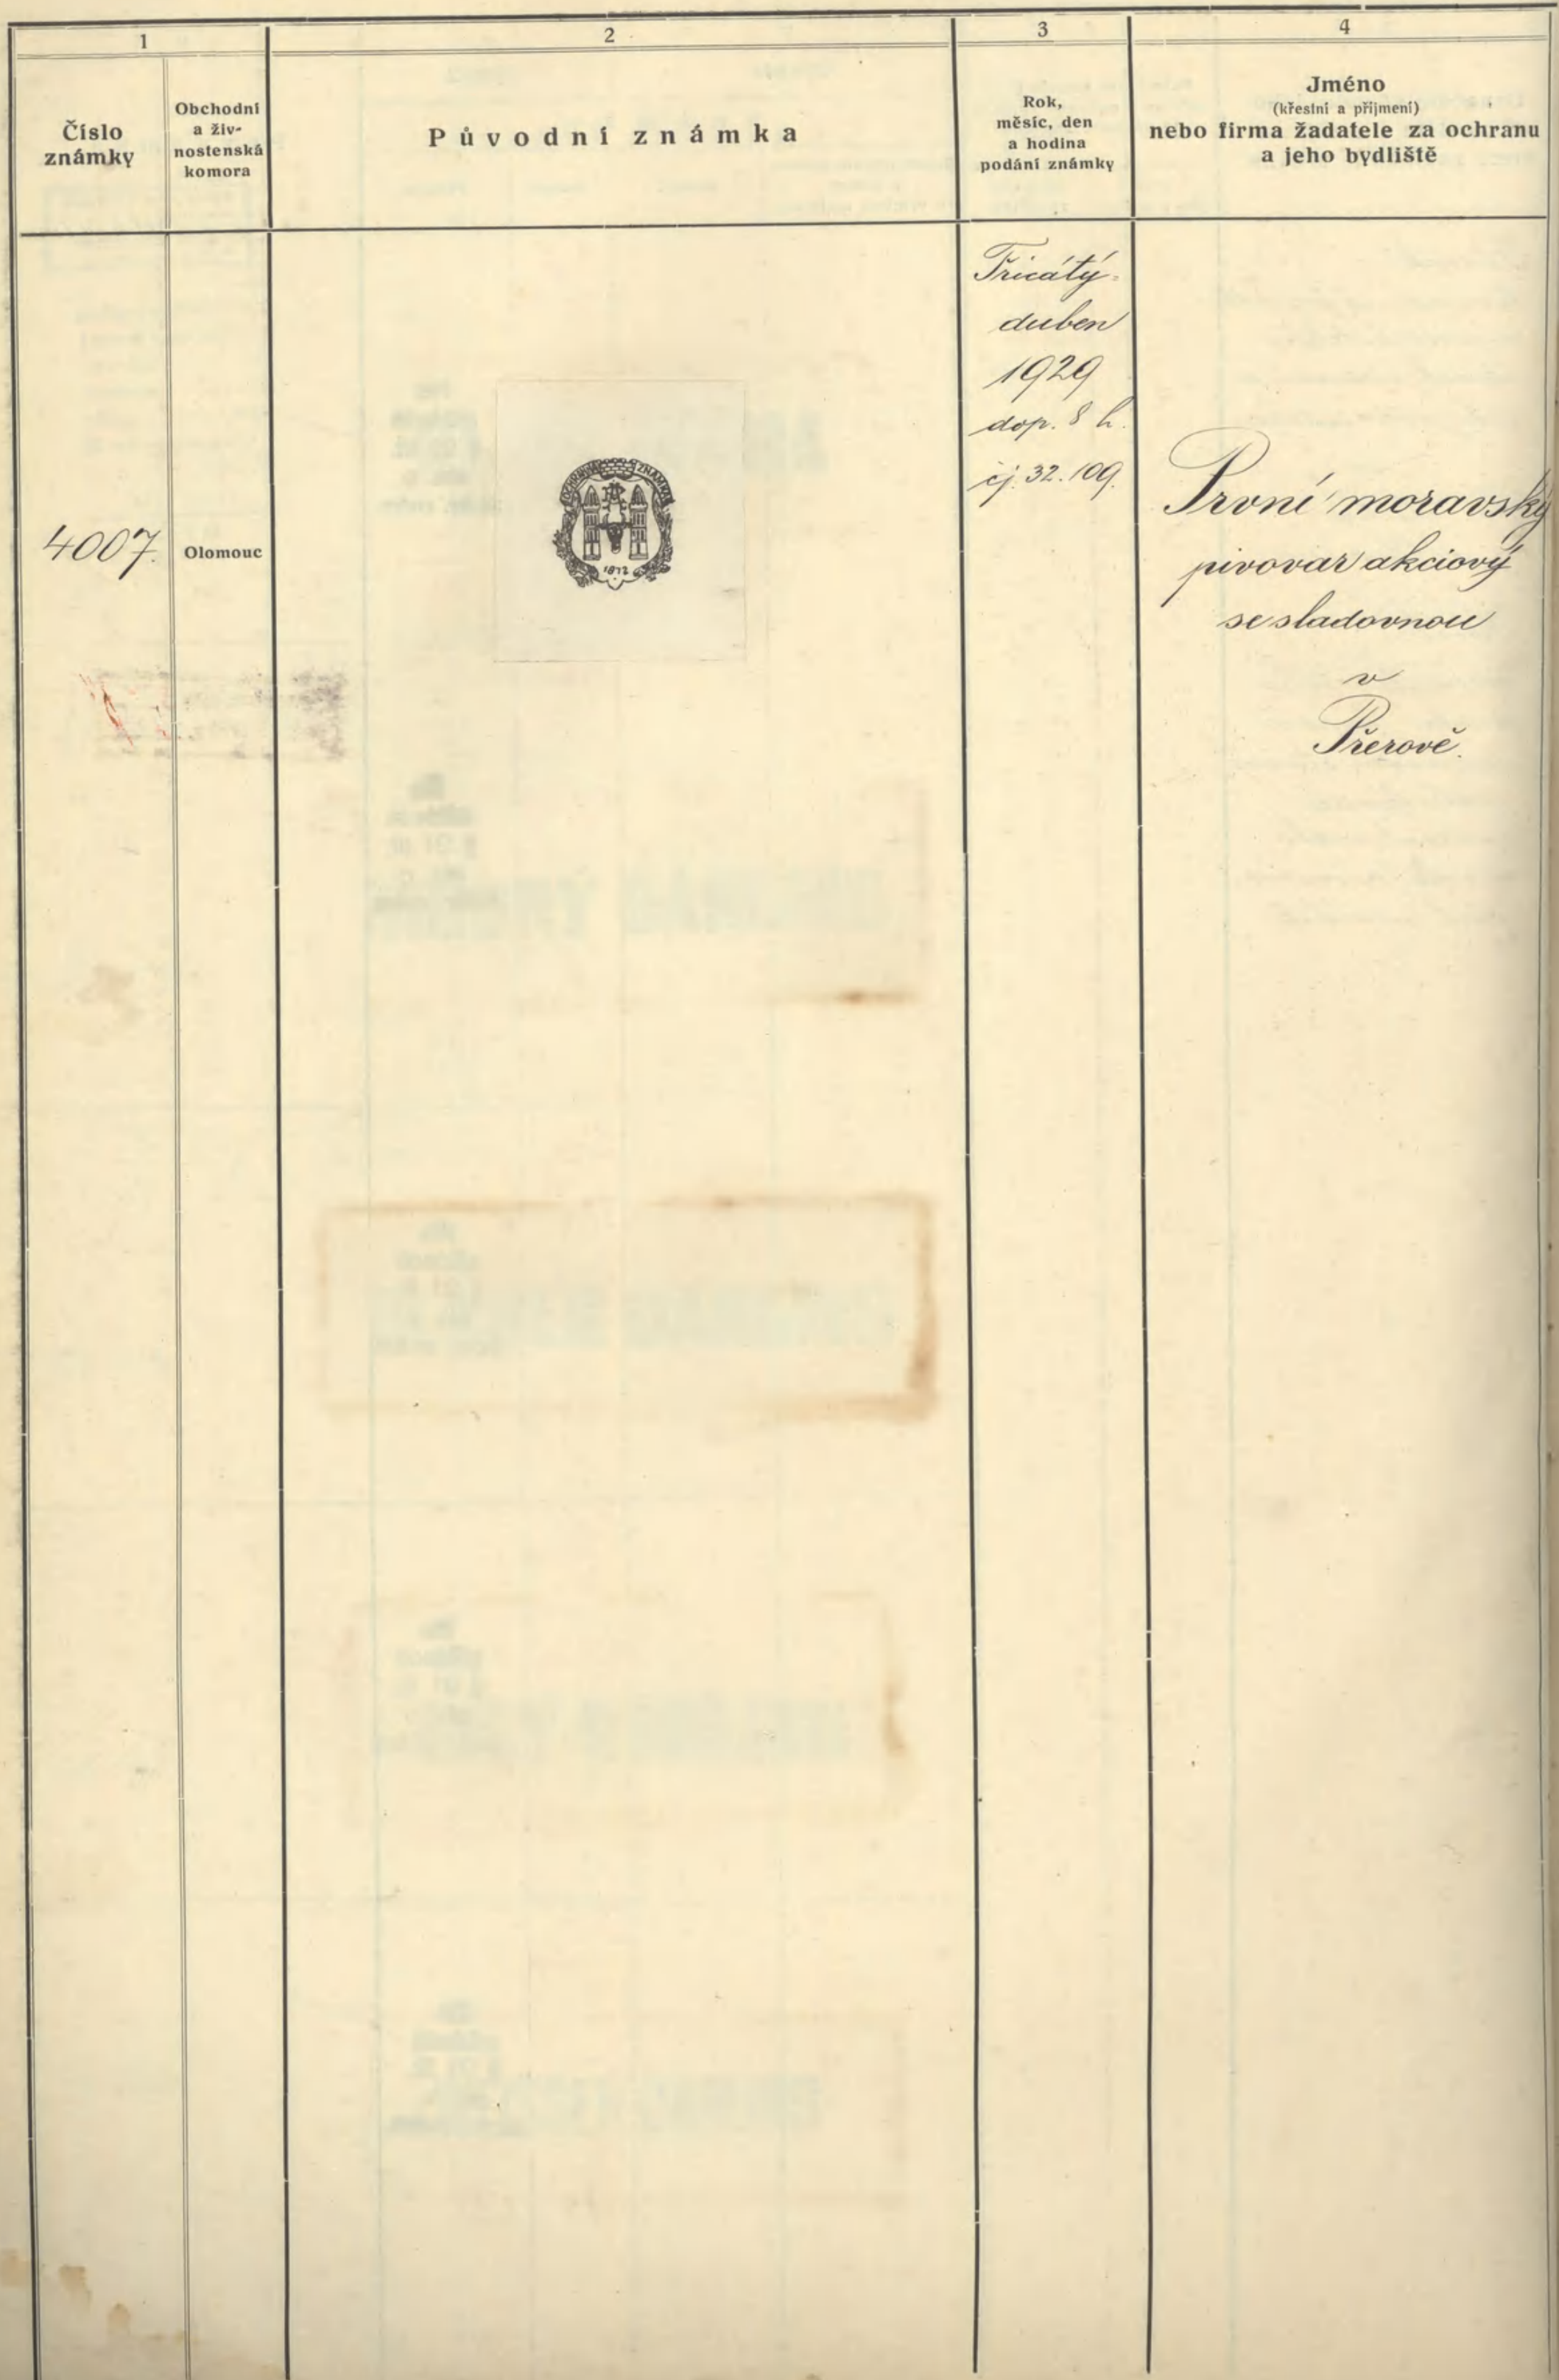 1
2
3
4
Číslo
známky
Obchodní
a živ-
nostenská
komora
Původní známka
Rok,
měsíc, den
a hodina
podání známky
Jméno
(křestní a příjmení)
nebo firma žadatele za ochranu
a jeho bydliště
4007.
Olomouc
OCHRANNÁ ZNÁMKA
1872
Třicátý
duben
1929
dop. 8 h.
čj. 32.109.
První moravský
pivovar akciový
se sladovnou
v
Přerově.